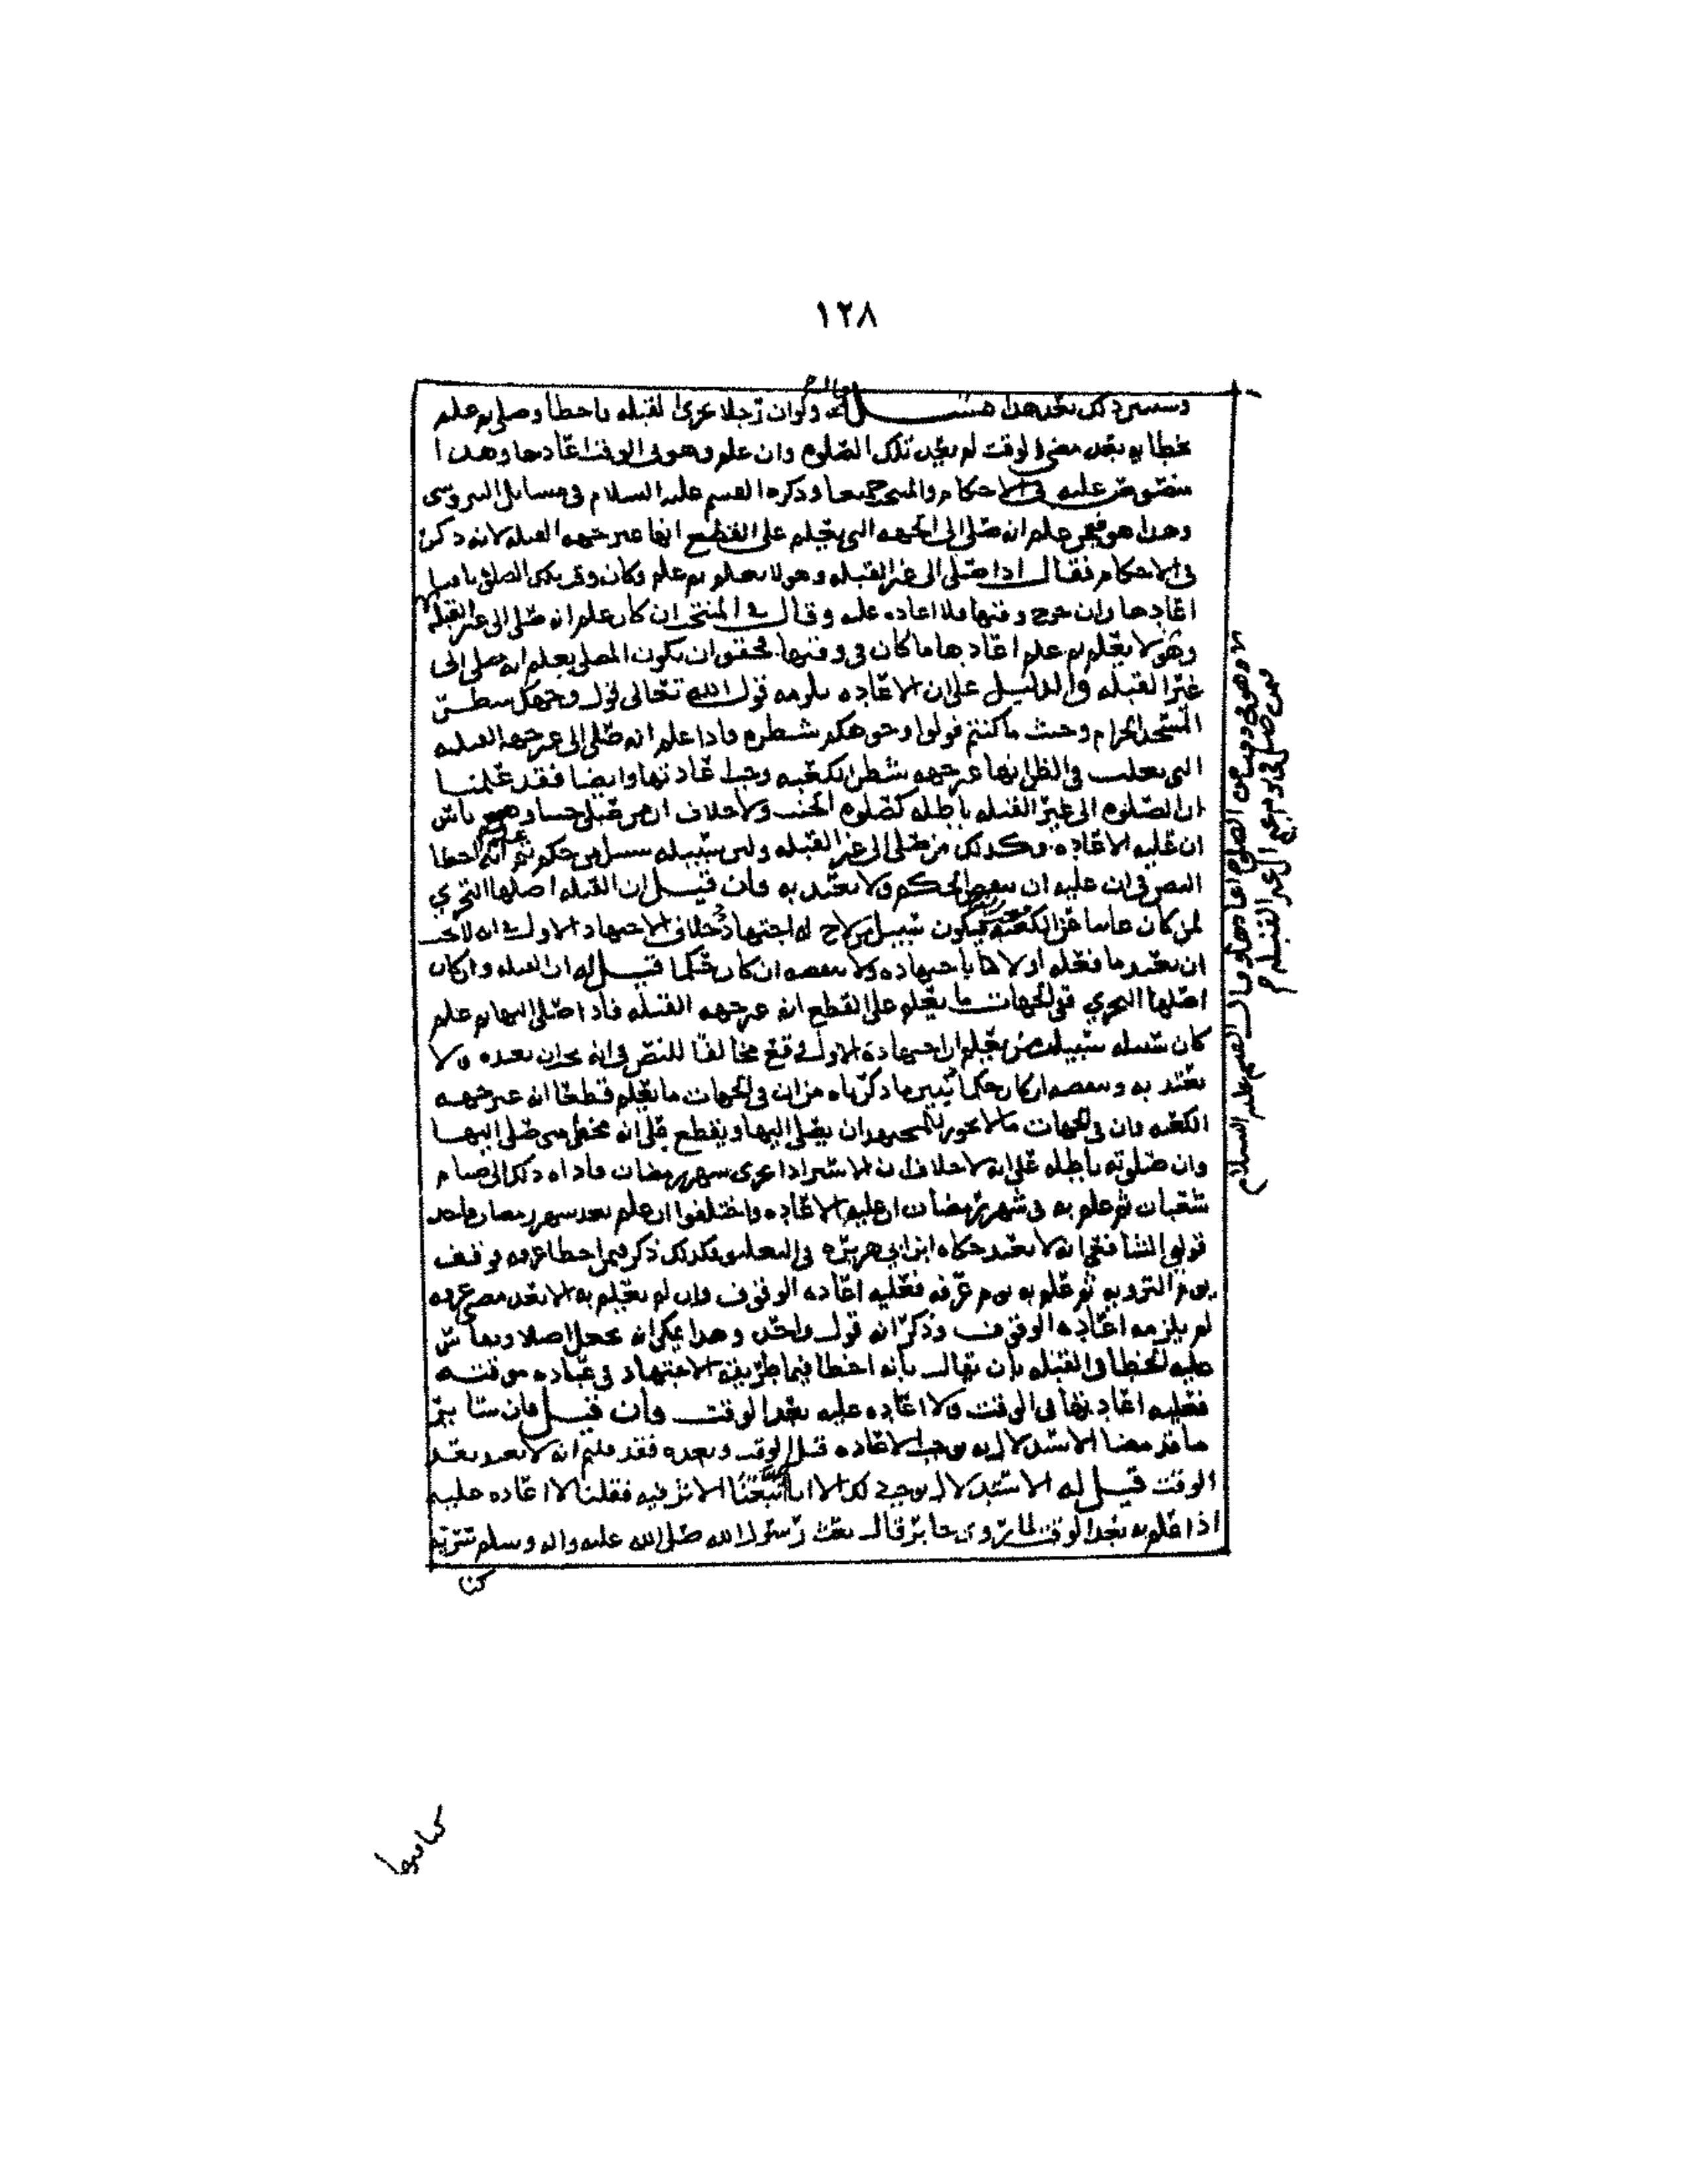 ١٢٨
وسنبين ذلك بعد هذا مسألة قال ولو ان رجلا تحرى القبله فاخطا وصلى ثم علم
بخطايه بعد مضي الوقت لم يعد تلك الصلوه وان علم وهو في الوقت اعادها وهذا
منصوص عليه في الاحكام والمنتخب جميعا وذكره القسم عليه السلام في مسايل النيروسي
وهذا هو فيمن علم انه صلى الى الجهه التي يعلم على القطع انها غير جهه القبله لانه ذكر
في الاحكام فقال اذا صلى الى غير القبله وهو لا يعلم ثم علم وكان وقت تلك الصلوه باقيا
اعادها وان خرج وقتها فلا اعاده عليه وقال في المنتخب ان كان علم انه صلى الى غير القبله
وهو لا يعلم ثم علم اعادها ما كان في وقتها فحقق ان يكون المصلي يعلم انه صلى الى
غير القبله والدليل على ان الاعاده تلزمه قول الله تعالى فول وجهك شطر
المسجد الحرام وحيث ما كنتم فولوا وجوهكم شطره فاذا علم انه صلى الى غير جهه القبله
التي يغلب في الظن انها غير جهه شطر الكعبه وجب اعادتها وايضا فقد علمنا
ان الصلوه الى غير القبله باطله كصلوه الجنب ولا خلاف ان من صلى جنبا وهو ناس
ان عليه الاعاده وكذلك من صلى الى غير القبله وليس سبيله سبيل من حكم ثم علم انه اخطا
النص في ان عليه ان ينقض الحكم ولا يعتد به فان قيل ان القبله اصلها التحري
لمن كان غايبا عن الكعبه فيكون سبيل من لاح له اجتهاد خلاف الاجتهاد الاول في انه لا يجب
ان يعيد ما فعله اولا باجتهاده ولا ينقضه ان كان حكما قيل له ان القبله وان كان
اصلها التحري ففي الجهات ما يعلم على القطع انه غير جهه القبله فاذا صلى اليها ثم علم
كان سبيله سبيل من يعلم ان اجتهاده الاول وقع مخالفا للنص في انه يجب ان يعيده ولا
يعتد به وينقضه ان كان حكما يبين ما ذكرناه من ان في الجهات ما يعلم قطعا انه غير جهه
الكعبه وان في الجهات ما لا يجوز للمجتهد ان يصلي اليها ويقطع على انه مخطي متى صلى اليها
وان صلوته باطله على انه لا خلاف ان الاسير اذا تحرى شهر رمضان فاداه ذلك الى صيام
شعبان ثم علم به في شهر رمضان ان عليه الاعاده واختلفوا ان علم بعد شهر رمضان فاحد
قولي الشافعي انه لا يعيد حكاه ابن ابي هريره في التعليق وكذلك ذكر فيمن اخطا عرفه فوقف
يوم الترويه ثم علم به يوم عرفه فعليه اعاده الوقوف وان لم يعلم به الا بعد مضي عرفه
لم يلزمه اعاده الوقوف وذكر انه قول واحد وهذا يمكن ان يجعل اصلا ويقاس
عليه الخطا في القبله بان يقال بانه اخطا فيما طريقه الاجتهاد في عباده موقته
فعليه اعادتها في الوقت ولا اعاده عليه بعد الوقت وان قيل فان ساير
ما قدمنا الاستدلال به يوجب الاعاده قبل الوقت وبعده فقد قلتم انه لا يعيد بعد
الوقت قيل له الاستدلال يوجب ذلك الا انا اتبعنا الاثر فيه فقلنا لا اعاده عليه
اذا علم به بعد الوقت لما روى جابر قال بعث رسول الله صلى الله عليه واله وسلم سريه
كنا
وهو في وقت من الصلوه اعادها وقال القسم عليه السلام
كنا فيها